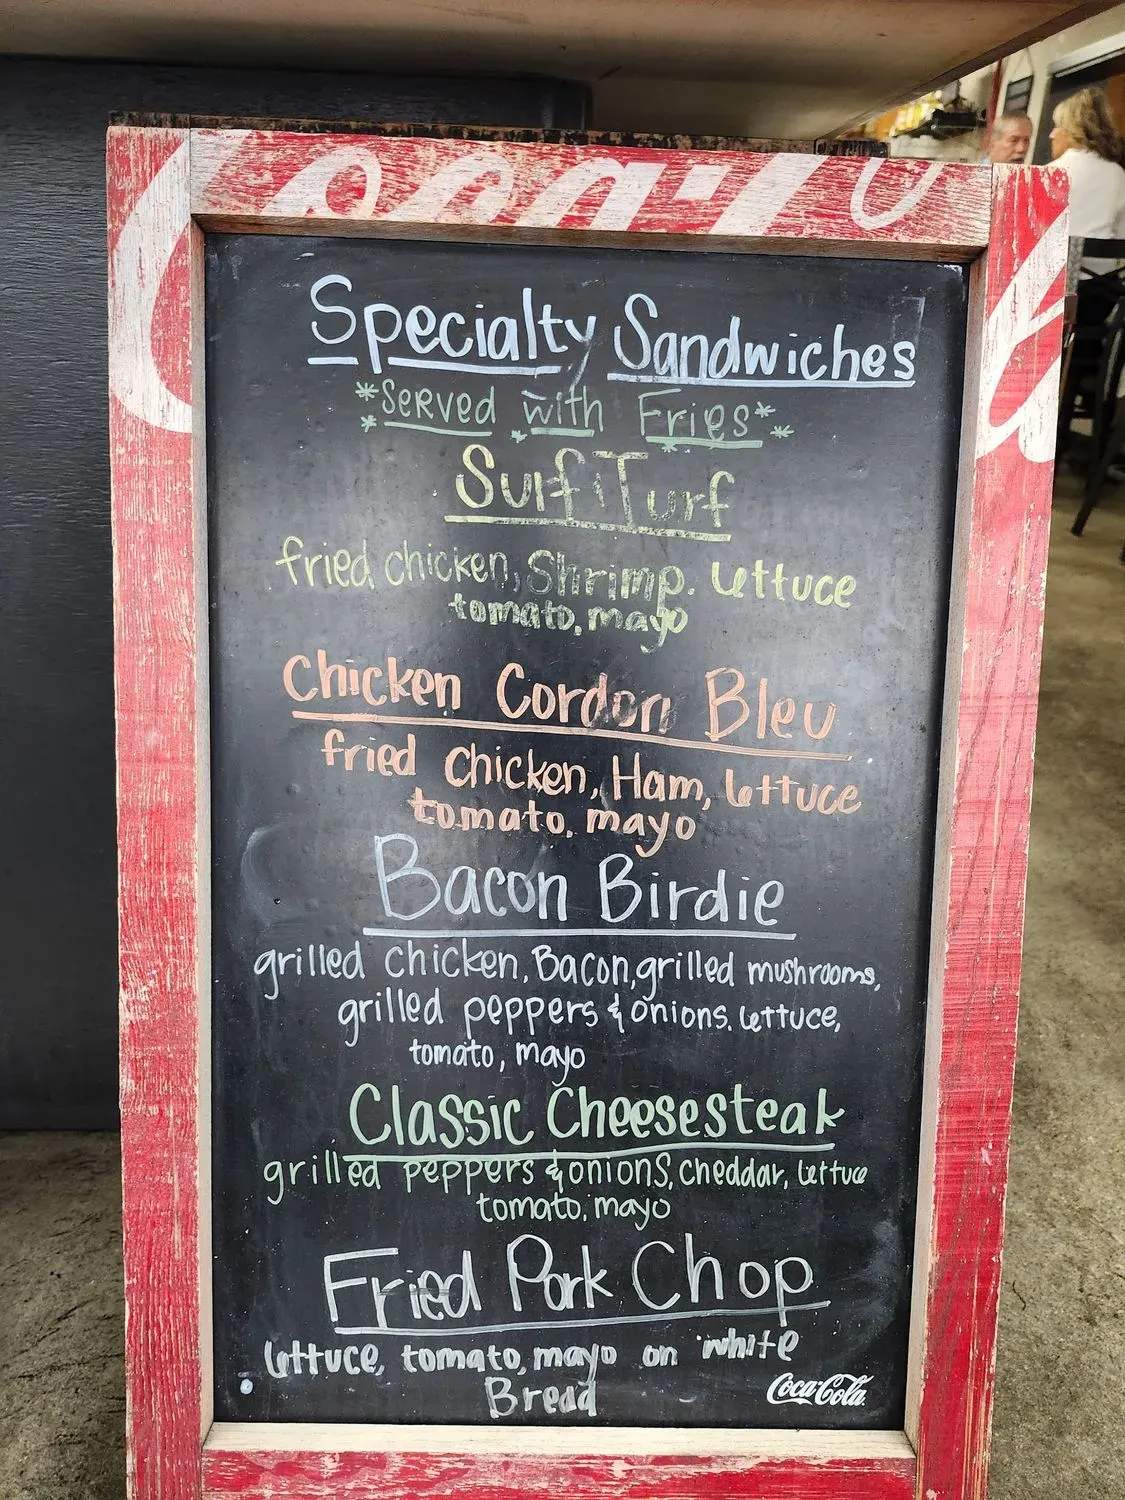 Coca-Cola
Specialty Sandwiches
*Served with Fries*
Surf i Turf
fried chicken, Shrimp. lettuce
tomato, mayo
Chicken Cordon Bleu
fried chicken, Ham, lettuce
tomato, mayo
Bacon Birdie
grilled chicken, Bacon, grilled mushrooms,
grilled peppers & onions. lettuce,
tomato, mayo
Classic Cheesesteak
grilled peppers & onions, cheddar, lettuce
tomato, mayo
Fried Pork Chop
lettuce, tomato, mayo on white
Bread
Coca-Cola